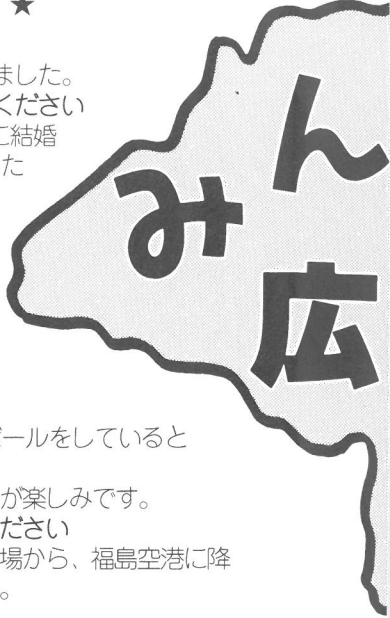 ★
ました。
ください
ご結婚
た
みん
広
ールをしていると
が楽しみです。
ださい
場から、福島空港に降
。